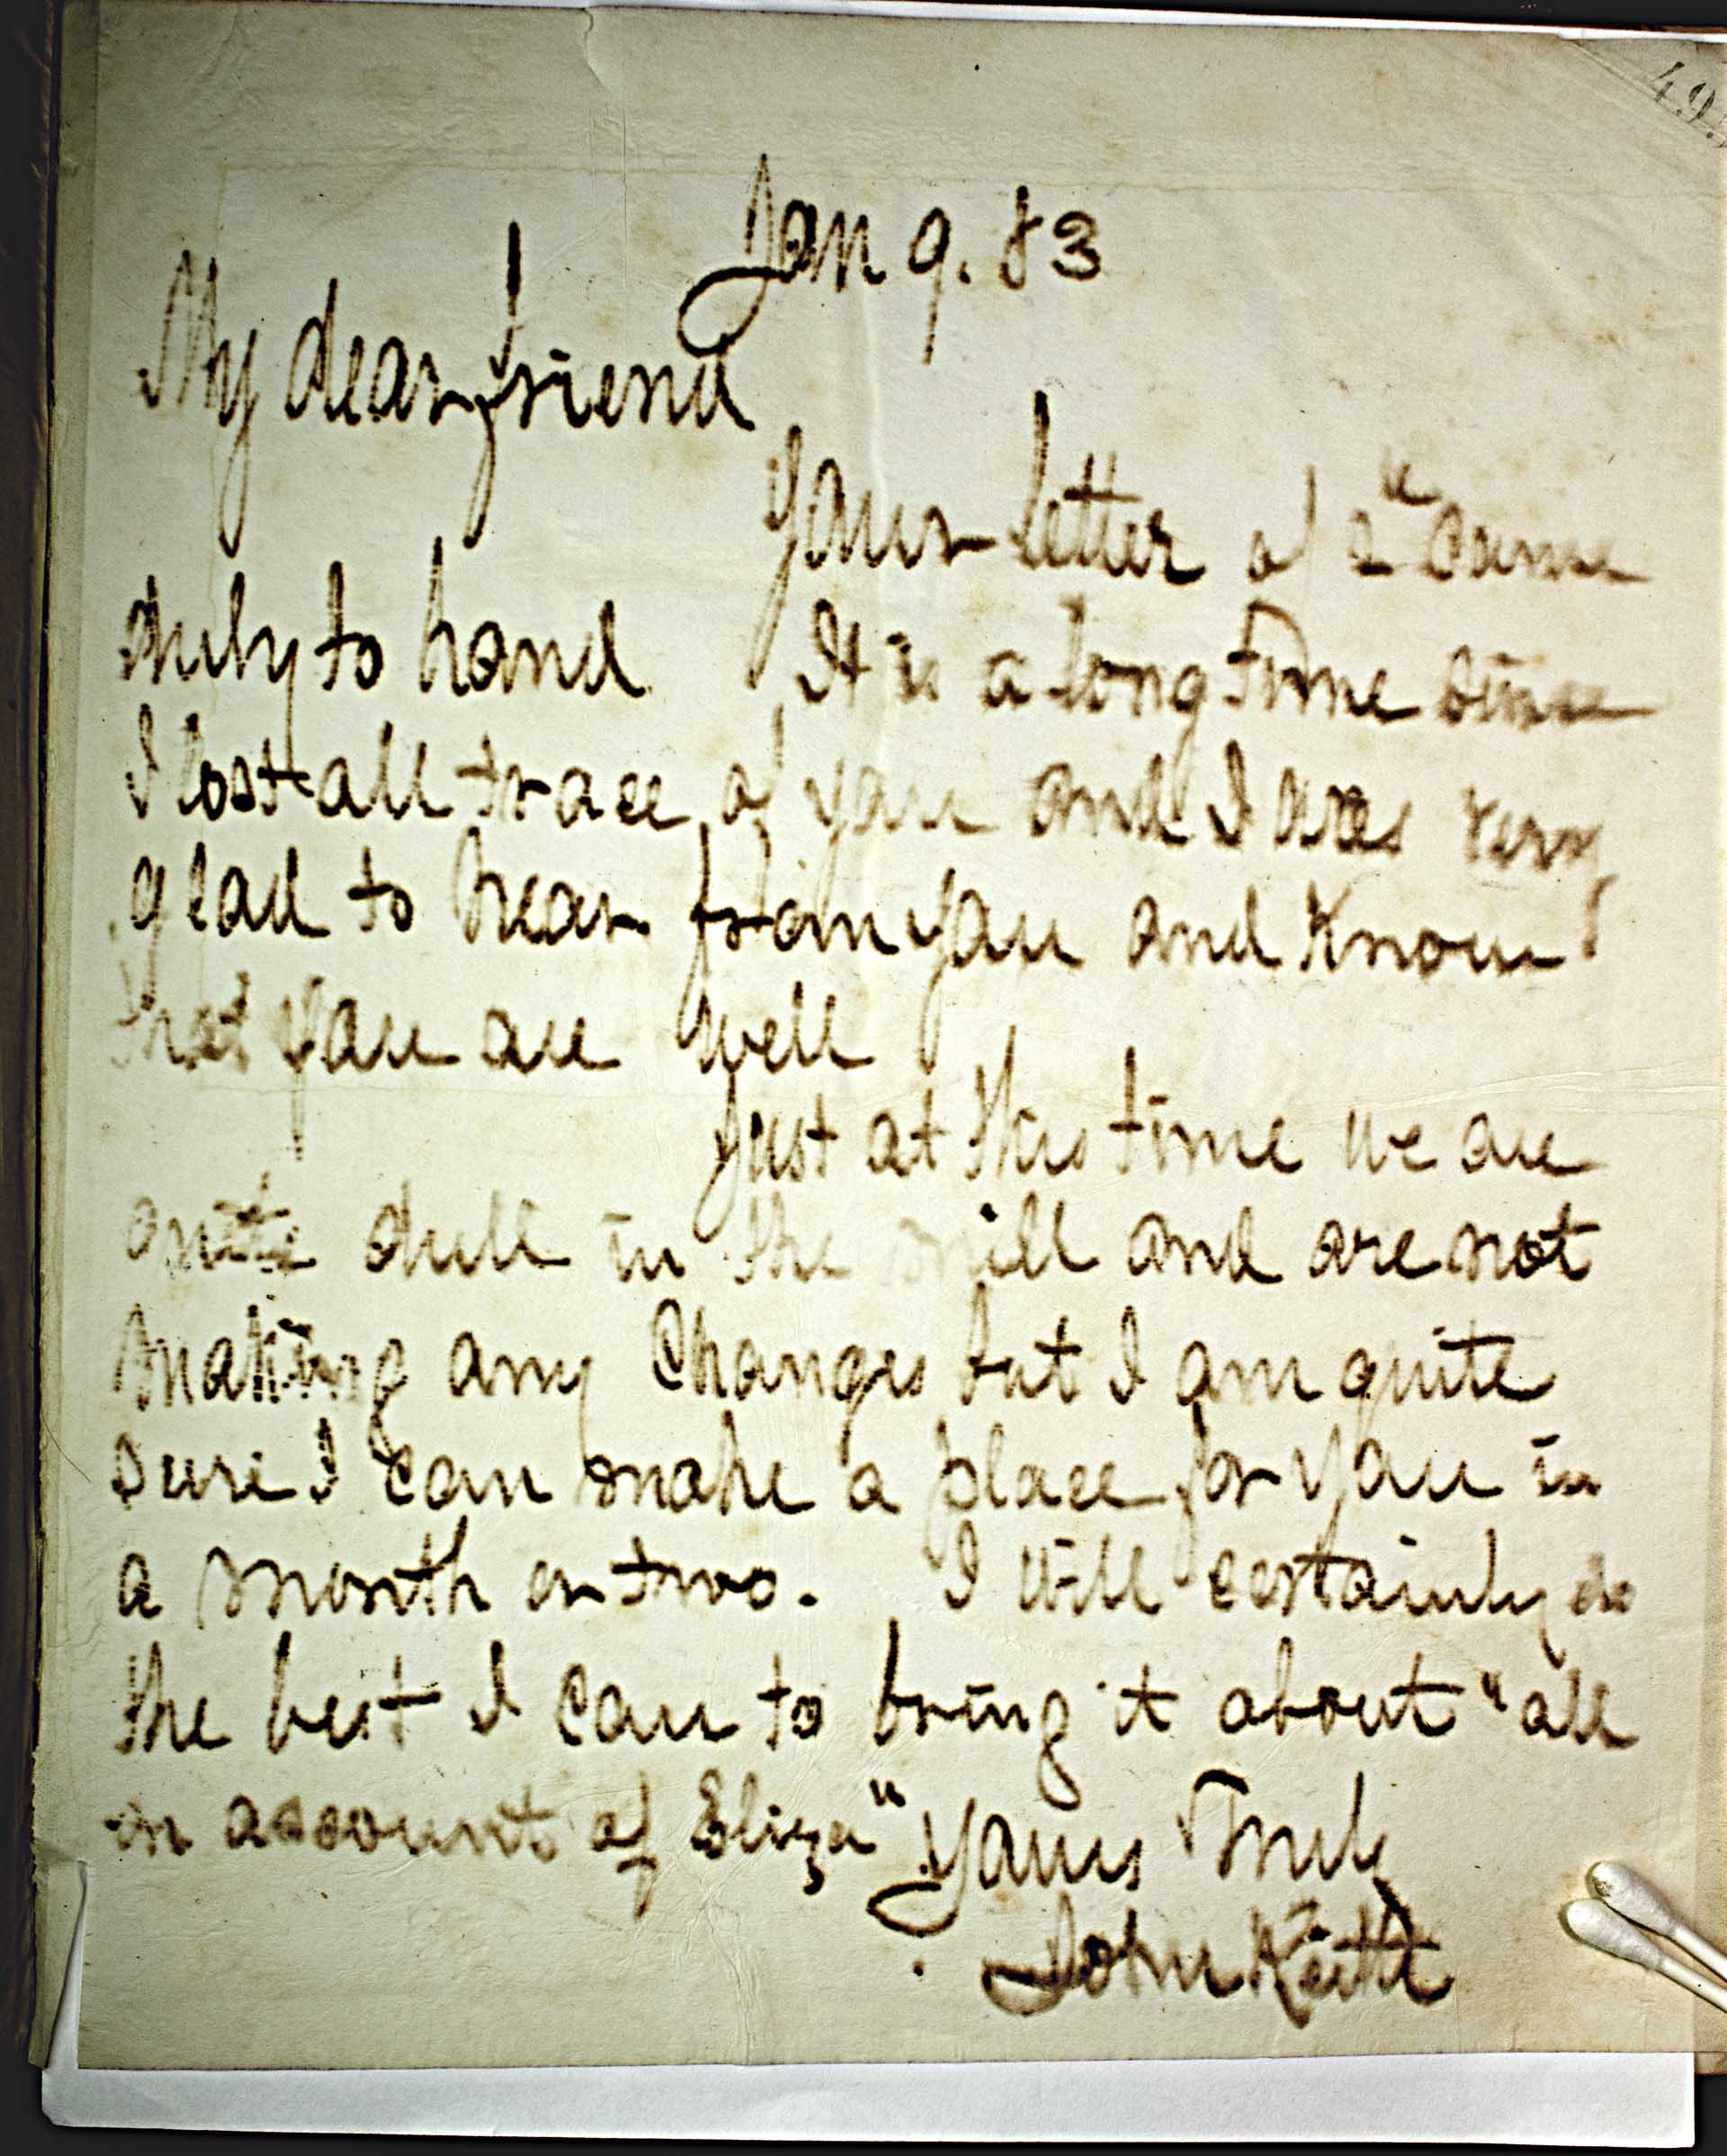 49
Jan 9. 83
My dear friend
Your letter of came
duly to hand It is a long time since
I lost all trace of you and I was very
glad to hear from you and know
that you are well
Just at this time we are
quite dull in the mill and are not
making any changes but I am quite
sure I can make a place for you in
a month or two. I will certainly do
the best I can to bring it about "all
on account of Eliza" Yours Truly
John Keith